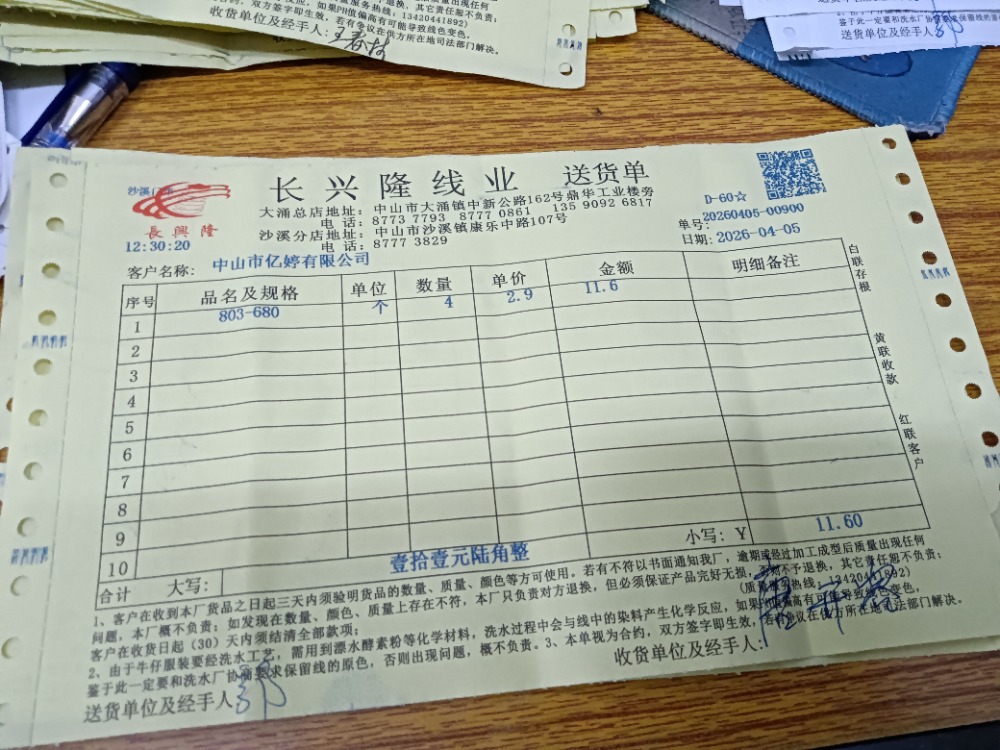 收货单位及经手人:
送货单位及经手人
沙溪门
長興隆
12:30:20
长兴隆线业 送货单
大涌总店地址：中山市大涌镇中新公路162号鼎华工业楼旁
电话：8773 7793 8777 0861 135 9092 6817
沙溪分店地址：中山市沙溪镇康乐中路107号
电话：8777 3829
D-60☆
单号: 20260405-00900
日期: 2026-04-05
客户名称: 中山市亿婷有限公司
序号 品名及规格 单位 数量 单价 金额 明细备注
1 803-680 个 4 2.9 11.6
2
3
4
5
6
7
8
9
10
合计 大写: 壹拾壹元陆角整 小写: Y 11.60
白联存根
黄联收款
红联客户
1、客户在收到本厂货品之日起三天内须验明货品的数量、质量、颜色等方可使用。若有不符以书面通知我厂，逾期或经过加工成型后质量出现任何
问题，本厂概不负责；如发现在数量、颜色、质量上存在不符，本厂只负责对方退换，但必须保证产品完好无损，否则不予退换，其它责任恕不负责；
客户在收货日起（30）天内须结清全部款项； (质量服务热线：13420441892)
2、由于牛仔服装要经洗水工艺，需用到漂水酵素粉等化学材料，洗水过程中会与线中的染料产生化学反应，如果PH值偏高有可能导致线色变色，
鉴于此一定要和洗水厂协商要求保留线的原色，否则出现问题，概不负责。3、本单视为合约，双方签字即生效，若有争议在供方所在地司法部门解决。
送货单位及经手人
收货单位及经手人: